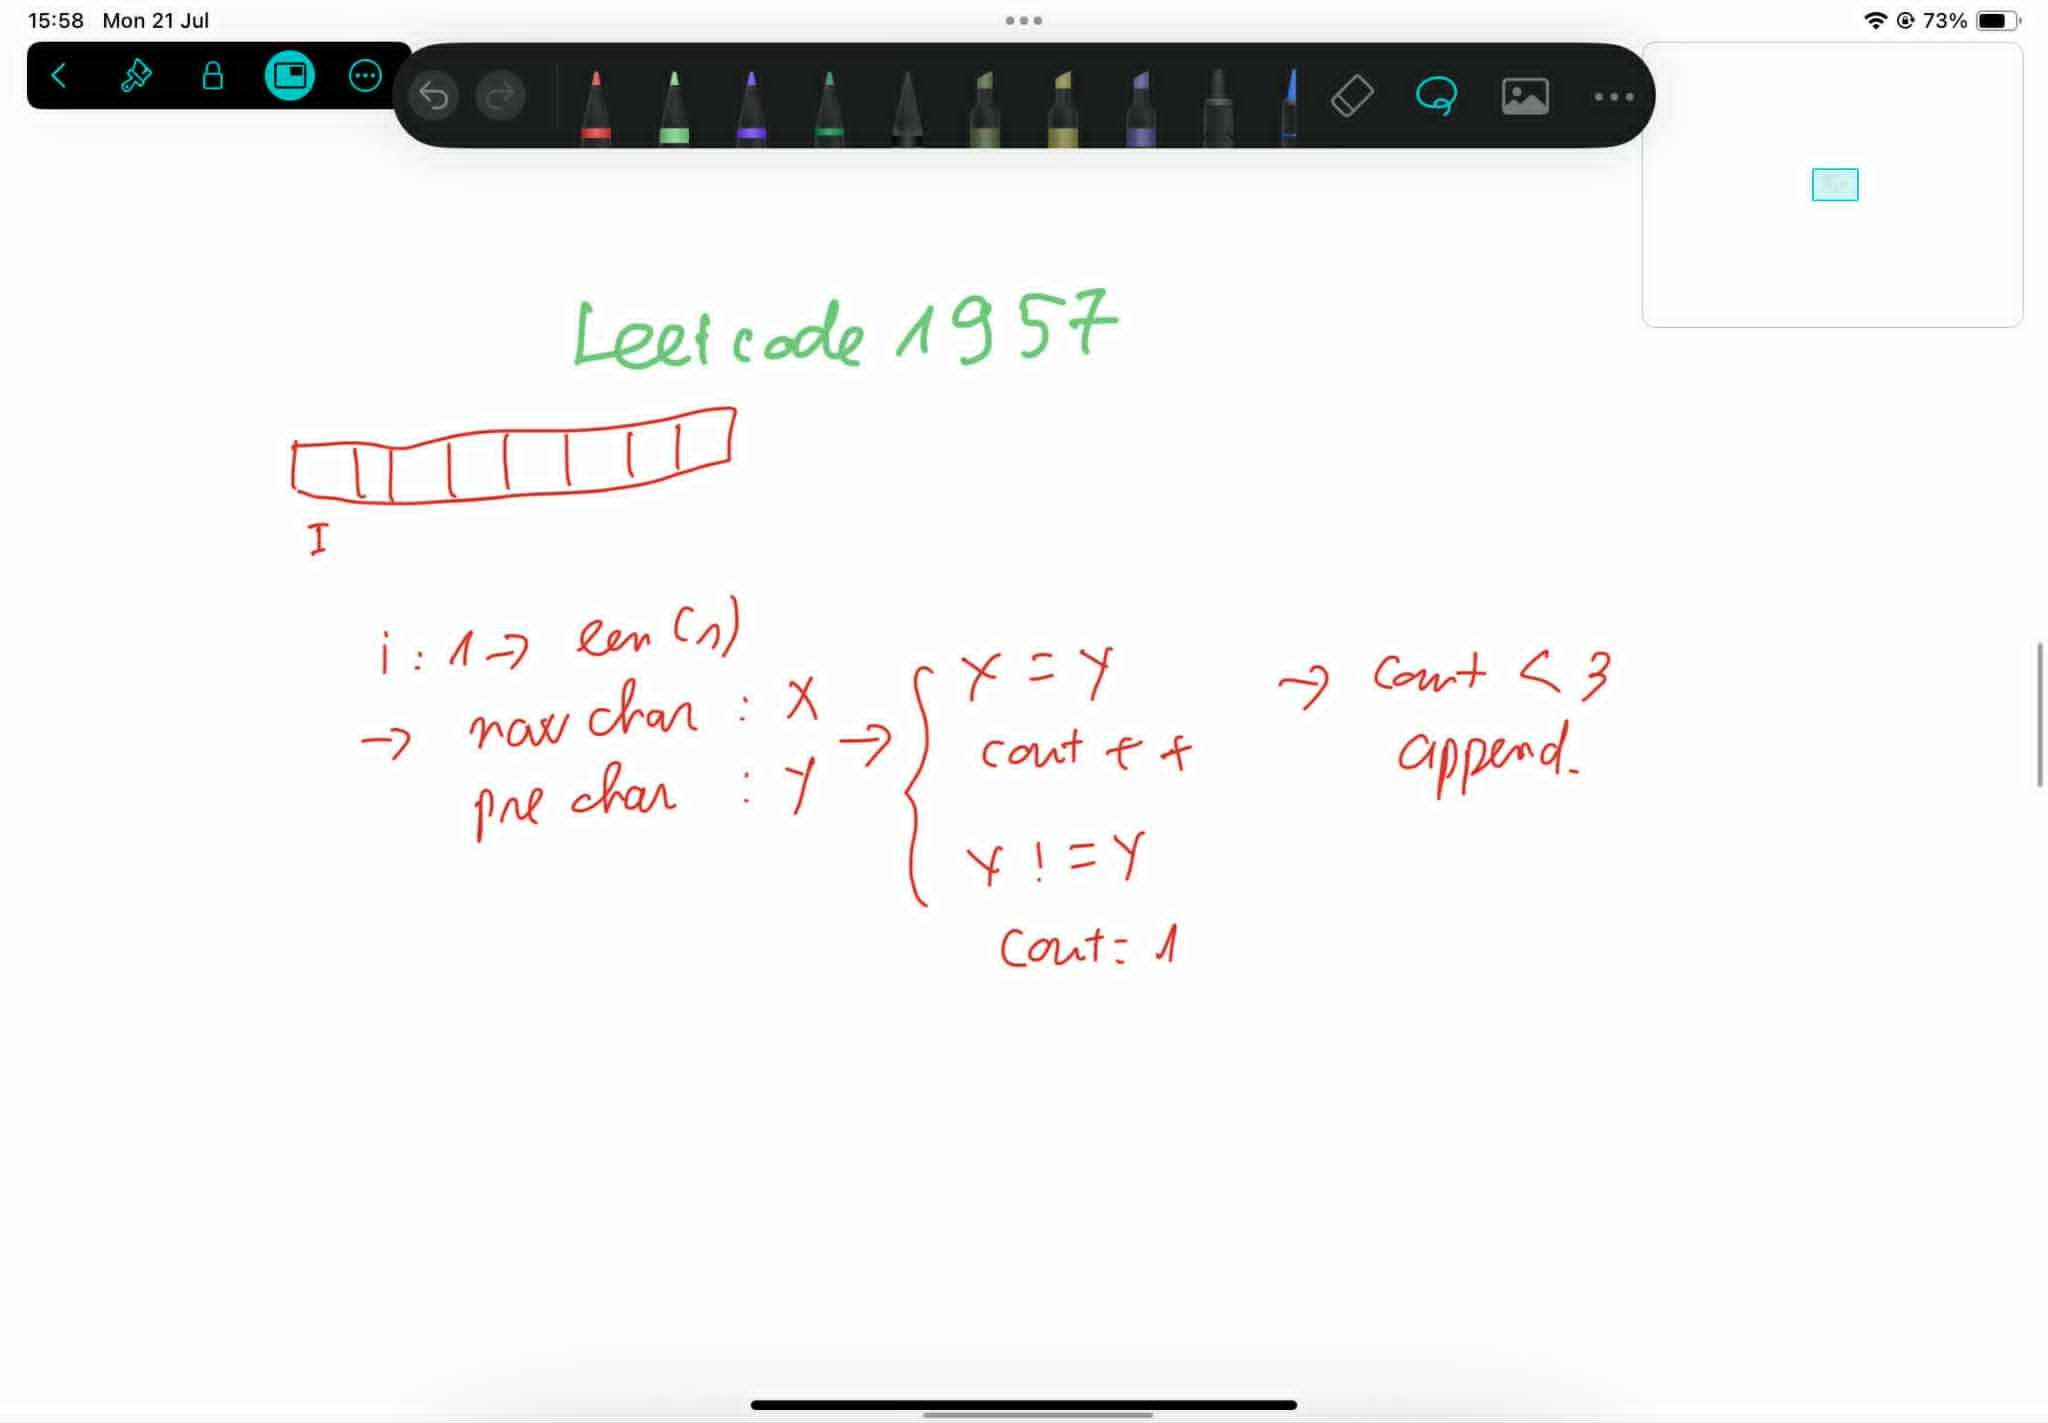 15:58 Mon 21 Jul
73%
Leetcode 1957
I
i : 1 → len(s)
→ now char : X →
pre char : Y
X = Y
cout + +
X != Y
Cout = 1
→ Count < 3
append.